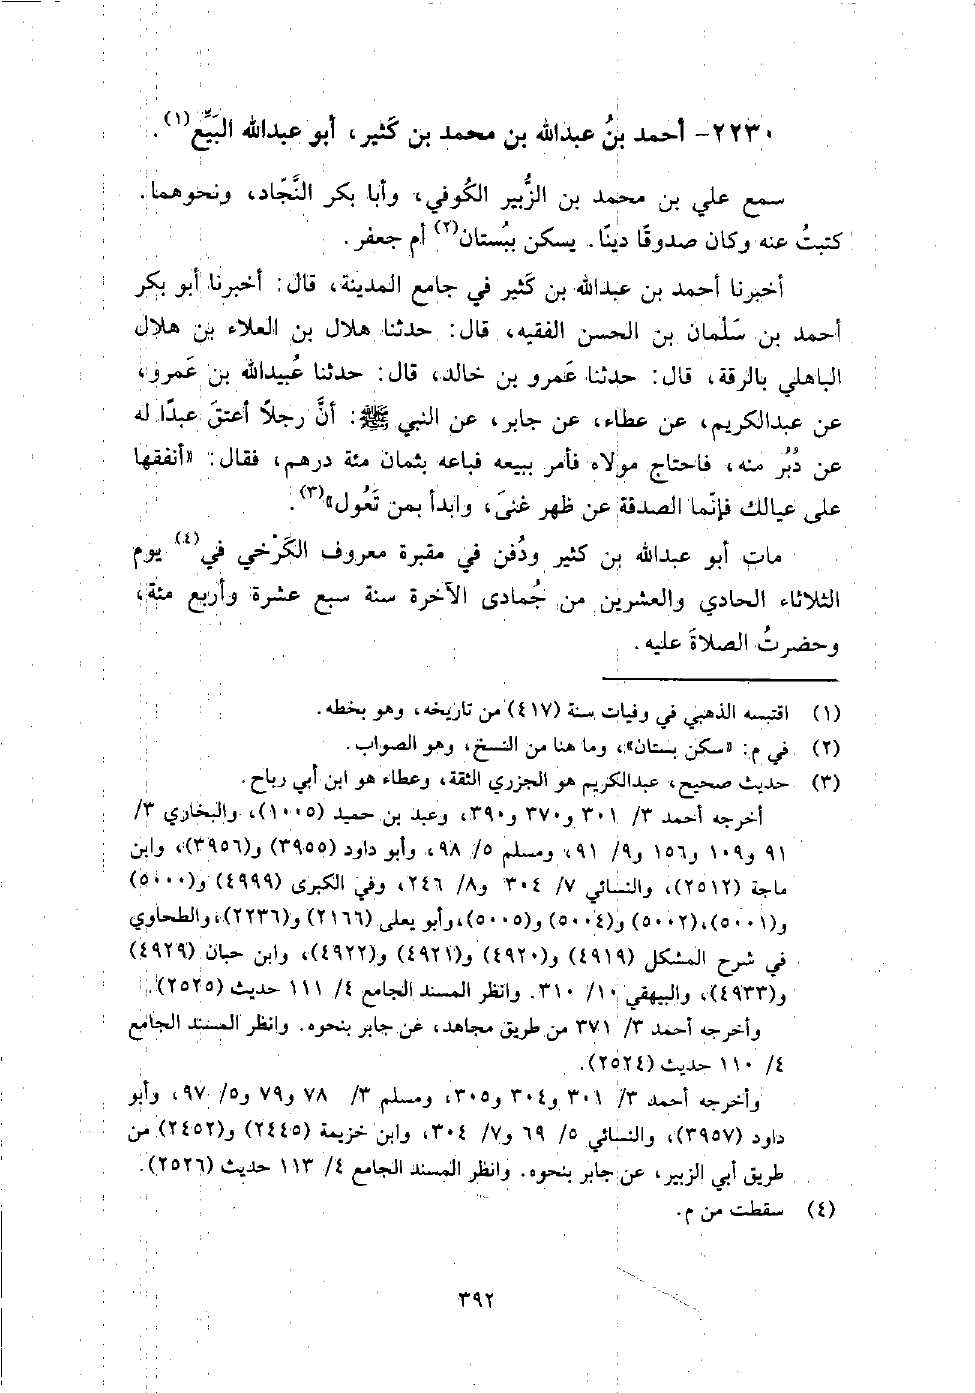 ٢٢٣٠- أحمد بنُ عبدالله بن محمد بن كَثير، أبو عبدالله البَيِّع(١).
سمع علي بن محمد بن الزُّبير الكُوفي، وأبا بكر النَّجّاد، ونحوهما.
كتبتُ عنه وكان صدوقًا دينًا. يسكن ببُستان(٢) أم جعفر.
أخبرنا أحمد بن عبدالله بن كَثير في جامع المدينة، قال: أخبرنا أبو بكر
أحمد بن سَلْمان بن الحسن الفقيه، قال: حدثنا هلال بن العلاء بن هلال
الباهلي بالرقة، قال: حدثنا عَمرو بن خالد، قال: حدثنا عُبيدالله بن عَمرو،
عن عبدالكريم، عن عطاء، عن جابر، عن النبي ﷺ: أنَّ رجلاً أعتقَ عبدًا له
عن دُبُر منه، فاحتاج مولاه فأمر ببيعه فباعه بثمان مئة درهم، فقال: «أنفقها
على عيالك فإنّما الصدقة عن ظهر غنىً، وابدأ بمن تَعُول»(٣).
مات أبو عبدالله بن كثير ودُفن في مقبرة معروف الكَرْخي في(٤) يوم
الثلاثاء الحادي والعشرين من جُمادى الآخرة سنة سبع عشرة وأربع مئة،
وحضرتُ الصلاةَ عليه.
(١) اقتبسه الذهبي في وفيات سنة (٤١٧) من تاريخه، وهو بخطه.
(٢) في م: «سكن بستان»، وما هنا من النسخ، وهو الصواب.
(٣) حديث صحيح، عبدالكريم هو الجزري الثقة، وعطاء هو ابن أبي رباح.
أخرجه أحمد ٣/ ٣٠١ و٣٧٠ و٣٩٠، وعبد بن حميد (١٠٠٥)، والبخاري ٣/
٩١ و١٠٩ و١٥٦ و٩/ ٩١، ومسلم ٥/ ٩٨، وأبو داود (٣٩٥٥) و(٣٩٥٦)، وابن
ماجة (٢٥١٢)، والنسائي ٧/ ٣٠٤ و٨/ ٢٤٦، وفي الكبرى (٤٩٩٩) و(٥٠٠٠)
و(٥٠٠١)،(٥٠٠٢) و(٥٠٠٤) و(٥٠٠٥)،وأبو يعلى (٢١٦٦) و(٢٢٣٦)،والطحاوي
في شرح المشكل (٤٩١٩) و(٤٩٢٠) و(٤٩٢١) و(٤٩٢٢)، وابن حبان (٤٩٢٩)
و(٤٩٣٣)، والبيهقي ١٠/ ٣١٠. وانظر المسند الجامع ٤/ ١١١ حديث (٢٥٢٥).
وأخرجه أحمد ٣/ ٣٧١ من طريق مجاهد، عن جابر بنحوه. وانظر المسند الجامع
٤/ ١١٠ حديث (٢٥٢٤).
وأخرجه أحمد ٣/ ٣٠١ و٣٠٤ و٣٠٥، ومسلم ٣/ ٧٨ و٧٩ و٥/ ٩٧، وأبو
داود (٣٩٥٧)، والنسائي ٥/ ٦٩ و٧/ ٣٠٤، وابن خزيمة (٢٤٤٥) و(٢٤٥٢) من
طريق أبي الزبير، عن جابر بنحوه. وانظر المسند الجامع ٤/ ١١٣ حديث (٢٥٢٦).
(٤) سقطت من م.
٣٩٢